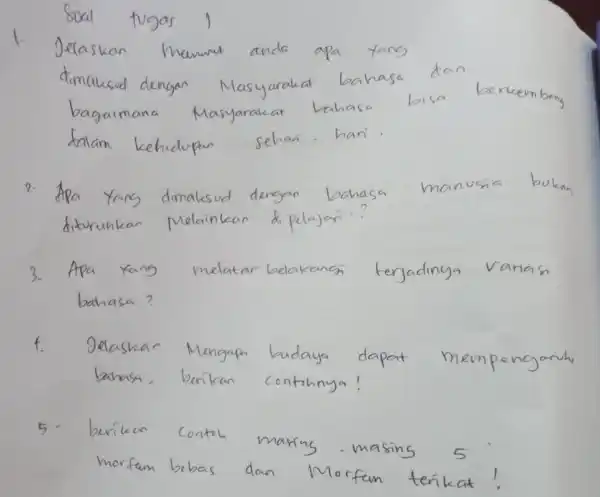 Soal tugas 1
1. Jelaskan menurut anda apa yang
dimaksud dengan Masyarakat bahasa dan
bagaimana Masyarakat bahasa bisa berkembang
dalam kehidupan sehari-hari.
2. Apa yang dimaksud dengan bahasa manusia bukan
diturunkan Melainkan di pelajari.?
3. Apa yang melatar belakangi terjadinya variasi
bahasa?
4. Jelaskan Mengapa budaya dapat mempengaruhi
bahasa, berikan contohnya!
5. berikan contoh masing-masing 5
morfem bebas dan Morfem terikat!